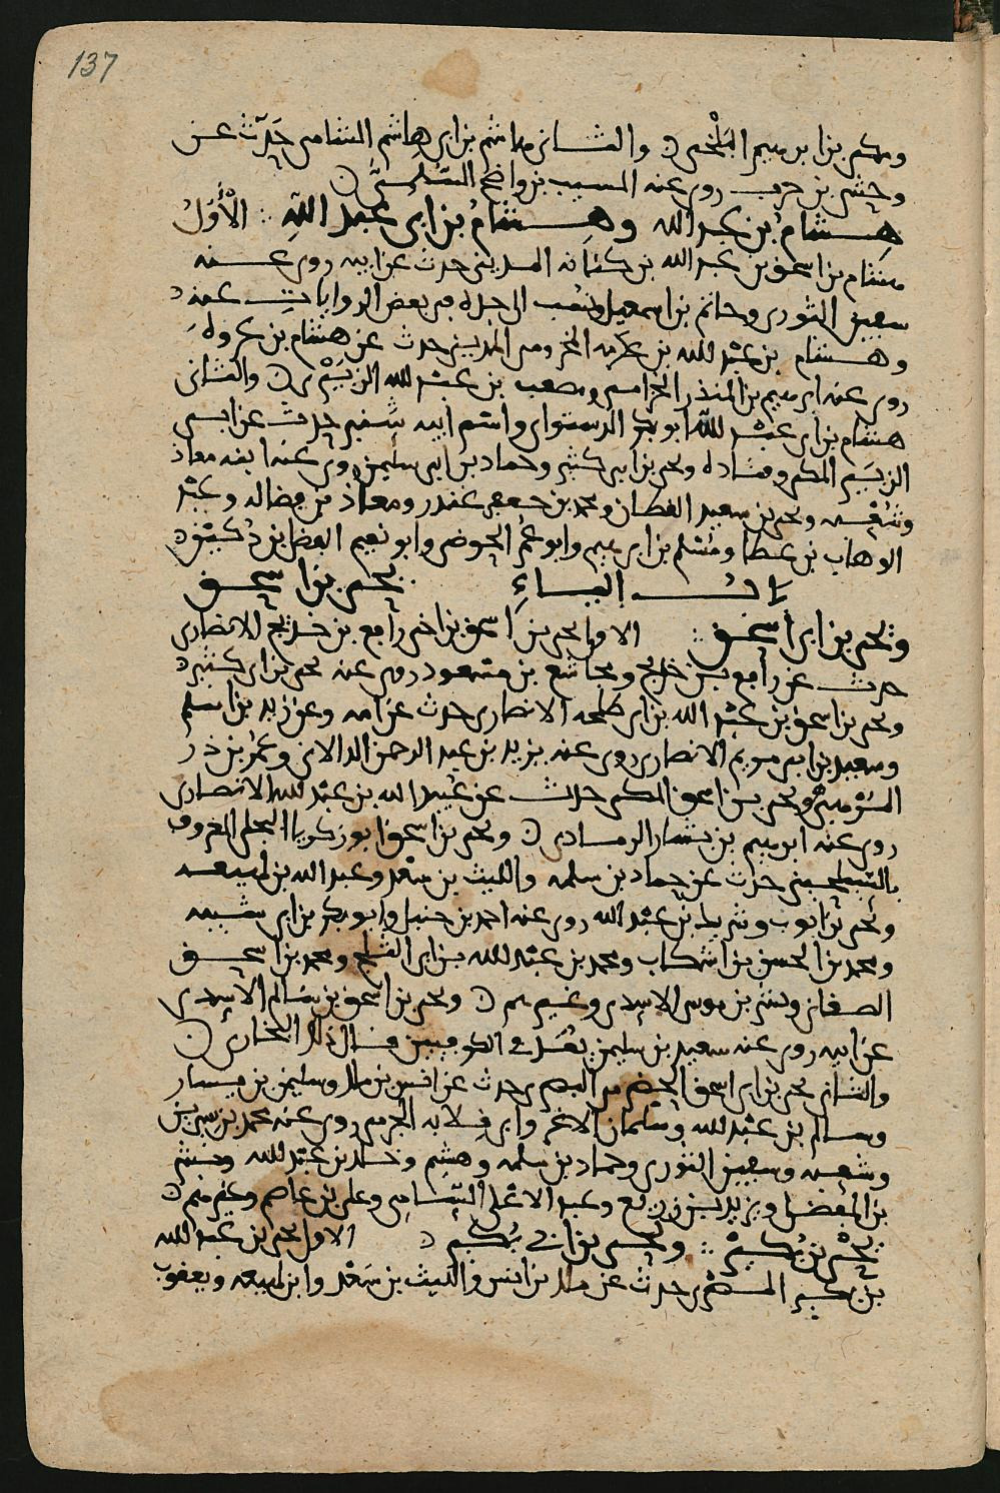 137
ومكي بن ابرهيم البلخي ۞ والثاني هاشم بن ابي هاشم الشامي حدث عن
وحشي بن حرب روى عنه المسيب بن واضح السلمي ۞
هشام بن عبد الله وهشام بن ابي عبد الله ∴ الأول
هشام بن اسحق بن عبد الله بن كنانه المديني حدث عن ابيه روى عنه
سفين الثوري وحاتم بن اسمعيل ونسب الى جده في بعض الروايات عنه ۞
وهشام بن عبد الله بن عكرمه المخزومي المديني حدث عن هشام بن عروه
روى عنه ابرهيم بن المنذر الحزامي ومصعب بن عبد الله الزبيري ۞ والثاني
هشام بن ابي عبد الله ابو بكر الدستواي واسم ابيه سنبر حدث عن ابي
الزبير المكي وقتاده ويحيى بن ابي كثير وحماد بن ابي سليمن روى عنه ابنه معاذ
وشعبه ويحيى بن سعيد القطان ومحمد بن جعفر غندر ومعاذ بن فضاله وعبد
الوهاب بن عطا ومسلم بن ابرهيم وابو عمر الحوضي وابو نعيم الفضل بن دكين ۞
باب الياء يحيى بن اسحق
ويحيى بن ابي اسحق ∴ الاول يحيى بن اسحق بن اخي رافع بن خديج الانصاري
حدث عن رافع بن خديج ومجاشع بن مسعود روى عنه يحيى بن ابي كثير ۞
ويحيى بن اسحق بن عبد الله بن ابي طلحه الانصاري حدث عن امه وعن زيد بن اسلم
وسعيد بن ابي مريم الانصاري روى عنه يزيد بن عبد الرحمن الدالاني وعمر بن ذر
ويحيى بن اسحق المكي حدث عن عبيد الله بن عبد الله الانصاري
روى عنه ابرهيم بن بشار الرمادي ۞ ويحيى بن اسحق ابو زكريا البجلي المعروف
بالسيلحيني حدث عن حماد بن سلمه والليث بن سعد وعبد الله بن لهيعه
ويحيى بن ايوب وشريك بن عبد الله روى عنه احمد بن حنبل وابو بكر بن ابي شيبه
ومحمد بن الحسين بن اشكاب ومحمد بن عبد الله بن ابي الثلج ومحمد بن اسحق
الصغاني وبشر بن موسى الاسدي وغيرهم ۞ ويحيى بن اسحق بن سالم الاسدي
عن ابيه روى عنه سعيد بن سليمن يعد في الكوفيين قال ذلك البخاري ۞
والثاني يحيى بن ابي اسحق الحضرمي البصري حدث عن انس بن ملك وسليمن بن يسار
وسالم بن عبد الله وسلمان الاغر وابي قلابه الجرمي روى عنه محمد بن سيرين
وشعبه وسفين الثوري وحماد بن سلمه وهشيم وخالد بن عبد الله وبشر
بن المفضل ويزيد بن زريع وعبد الاعلى السامي وعلي بن عاصم وغيرهم ۞
يحيى بن بكير ∴ ويحيى بن ابي بكير ۞ الاول يحيى بن عبد الله
بن بكير المصري حدث عن ملك بن انس والليث بن سعد وابن لهيعه ويعقوب